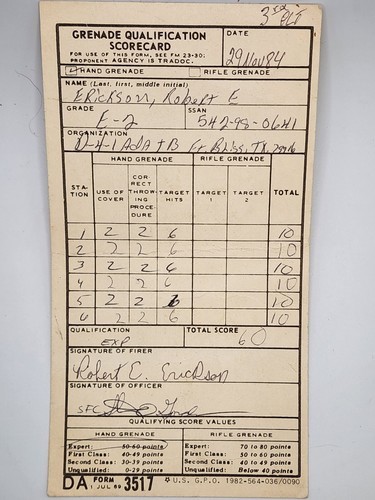 3rd PLT
GRENADE QUALIFICATION
SCORECARD
FOR USE OF THIS FORM, SEE FM 23-30;
PROPONENT AGENCY IS TRADOC.
DATE
29 Nov 84
HAND GRENADE RIFLE GRENADE
NAME (Last, first, middle initial)
Erickson, Robert E
GRADE SSAN
E-2 542-98-0641
ORGANIZATION
D-4-1 AdA TB Ft. Bliss, TX,
HAND GRENADE RIFLE GRENADE
STATION USE OF COVER CORRECT THROWING PROCEDURE TARGET HITS TARGET 1 TARGET 2 TOTAL
1 2 2 6 10
2 2 2 6 10
3 2 2 6 10
4 2 2 6 10
5 2 2 6 10
6 2 2 6 10
QUALIFICATION TOTAL SCORE
EXP 60
SIGNATURE OF FIRER
Robert C. Erickson
SIGNATURE OF OFFICER
SFC
QUALIFYING SCORE VALUES
HAND GRENADE RIFLE GRENADE
Expert: 50-60 points Expert: 70 to 80 points
First Class: 40-49 points First Class: 50 to 60 points
Second Class: 30-39 points Second Class: 40 to 49 points
Unqualified: 0-29 points Unqualified: Below 40 points
DA FORM 1 JUL 80 3517 ☆ U.S. G.P.O. 1982-564-036/0090